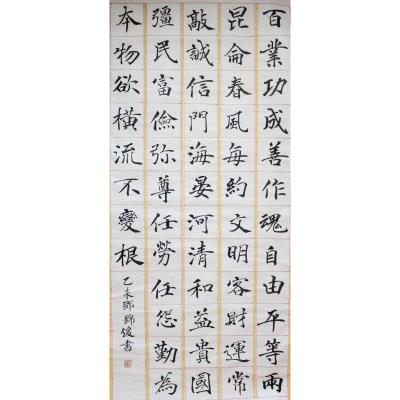 百業功成善作魂自由平等兩
昆侖春風每約文明容財運常
敲誠信門海晏河清和益貴國
彊民富儉弥尊任勞任怨勤為
本物欲橫流不變根
乙未鄧錦俊書